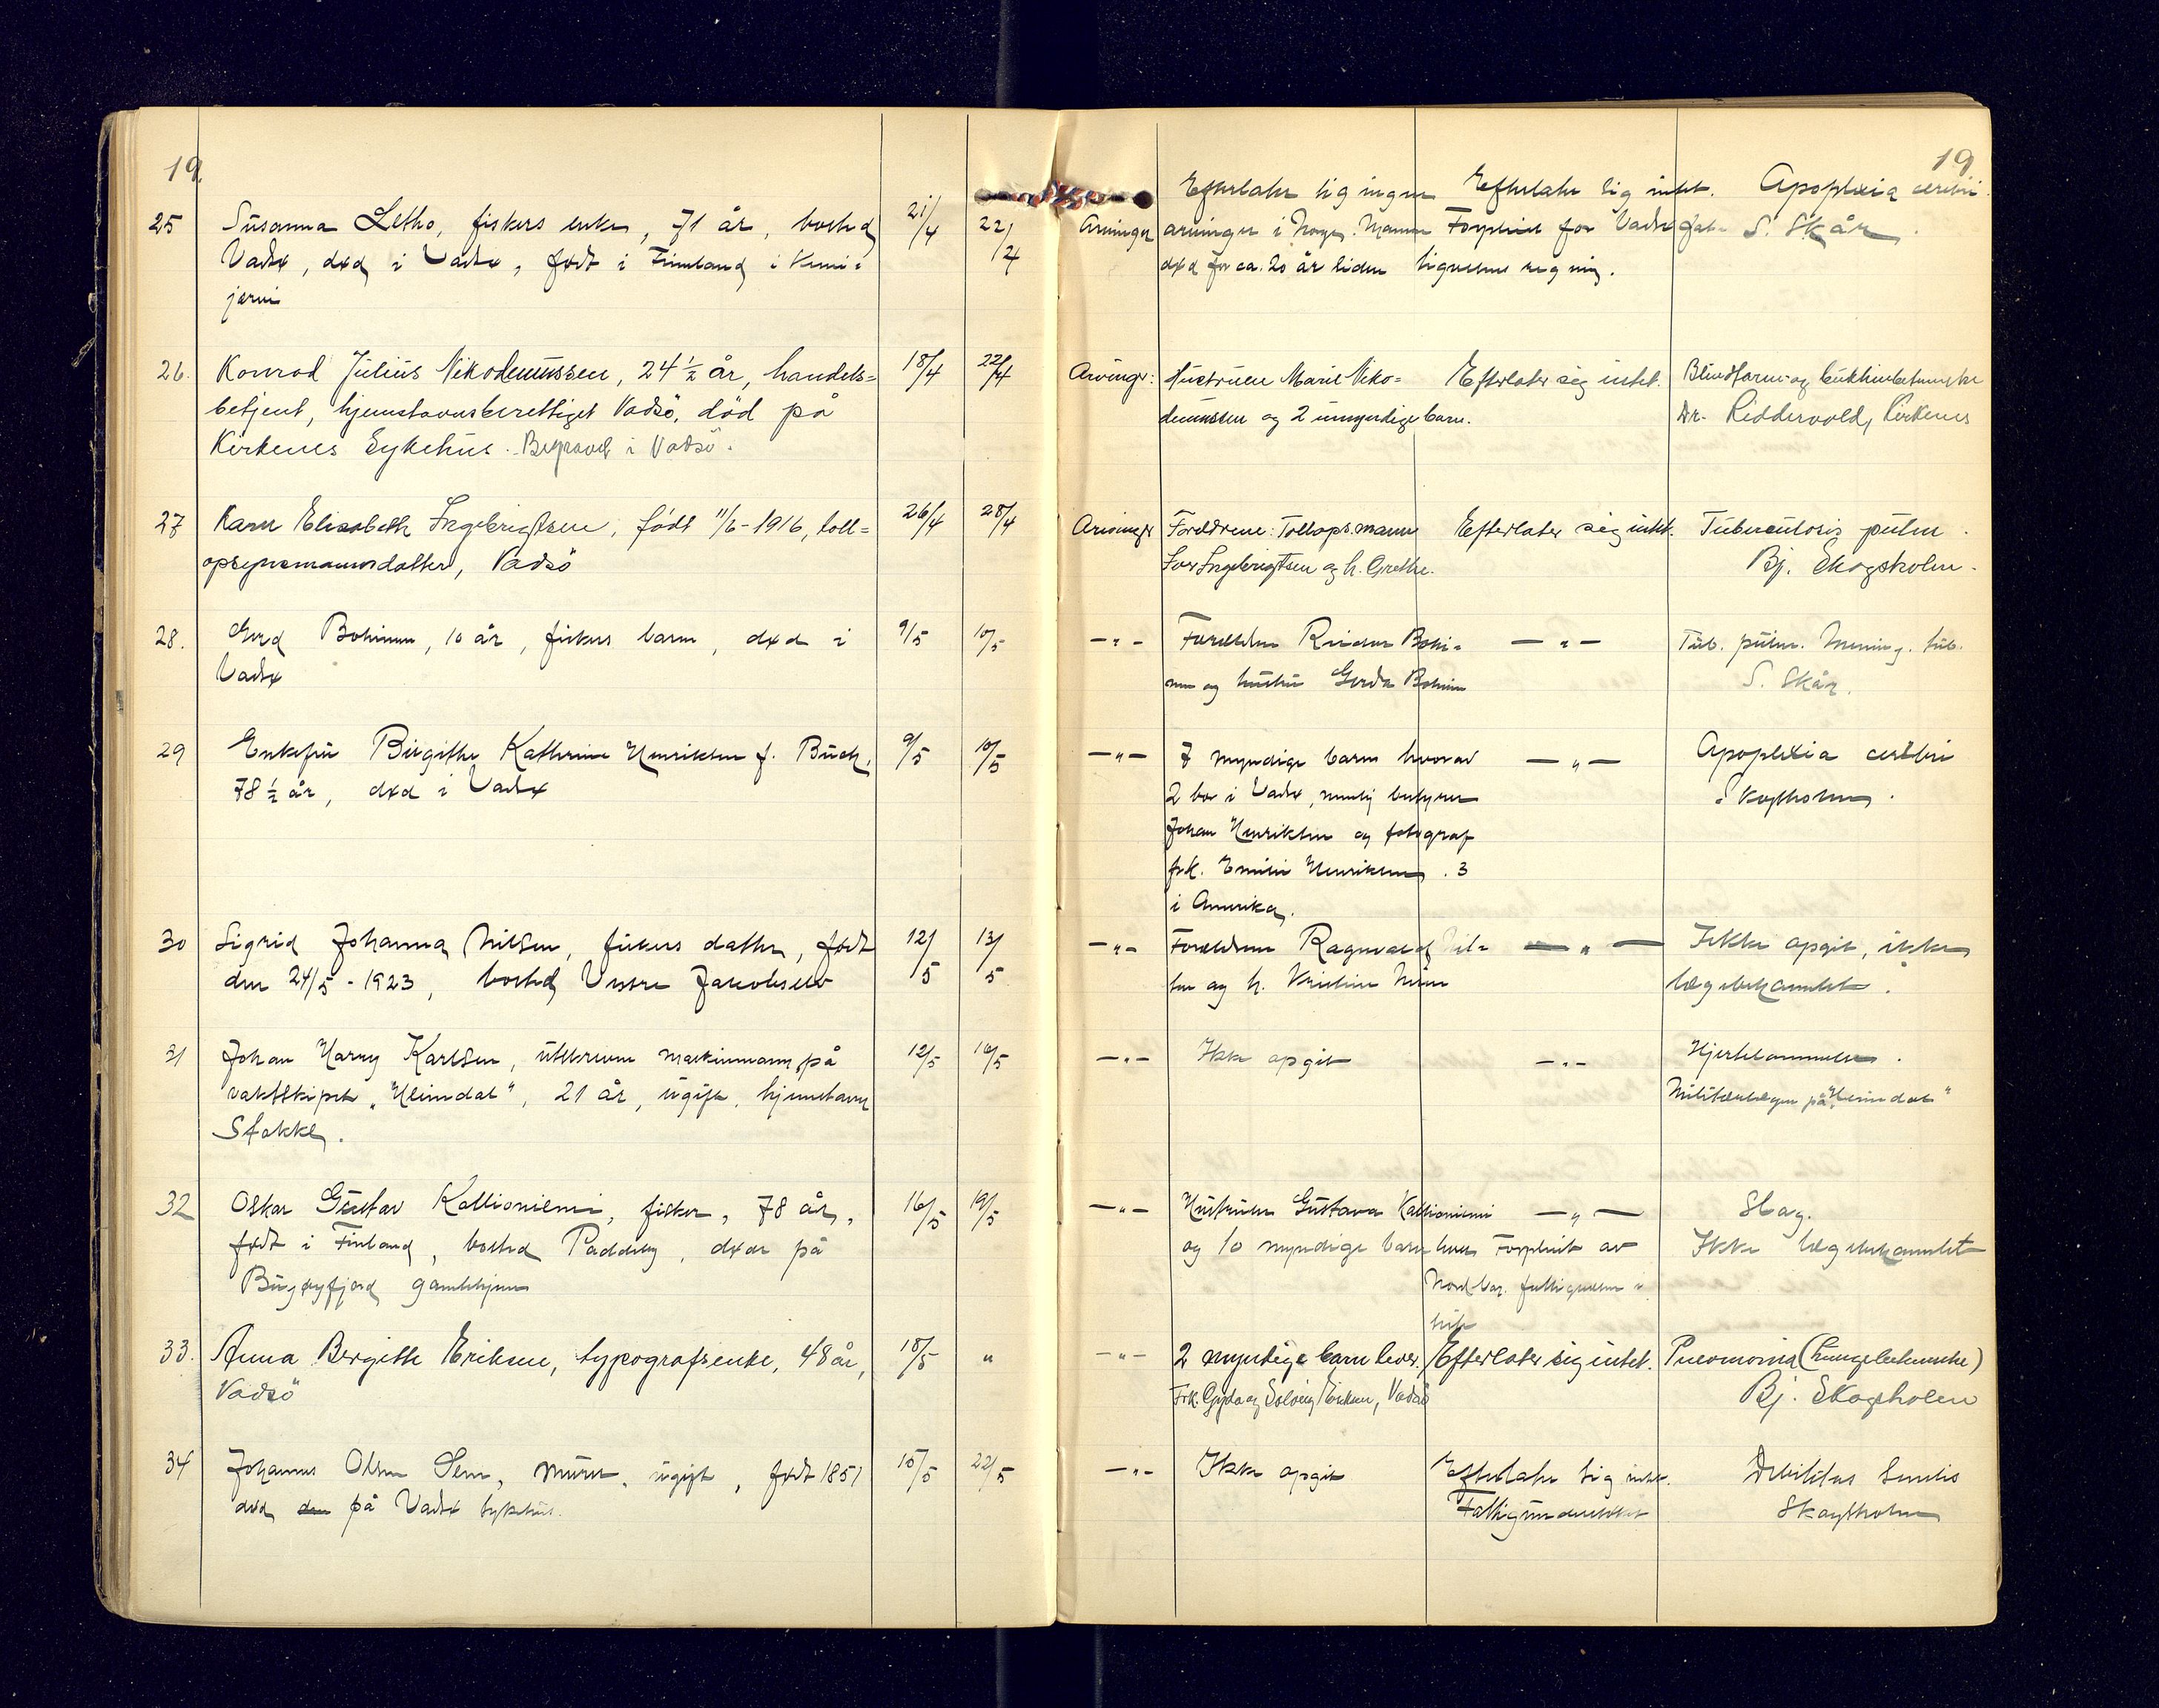 19.
25 Susanna Letho, fiskers enke, 71 år, bosted 21/4 22/4
Vadsø, død i Vadsø, født i Finland i Kemi-
jærvi
26. Konrad Julius Nikodemussen, 24 ½ år, handels= 18/4 22/4
betjent, hjemstavnsberettiget Vadsö, död på
Kirkenes Sykehus. Begravet i Vadsö.
27 Karen Elisabeth Ingebrigtsen, födt 11/6-1916, toll= 26/4 28/4
opsynsmannsdatter, Vadsö
28. Gerd Bohinen, 10 år, fiskers barn, død i 9/5 10/5
Vadsø
29 Enkefru Birgithe Kathrine Henriksen f. Buch, 9/5 10/5
78 ½ år, død i Vadsø
30 Sigrid Johanna Nilsen, fiskers datter, født 12/5 13/5
den 24/5 - 1923, bosted Vestre Jakobselv
31 Johan Harry Karlsen, utskreven maskinmann på 12/5 16/5
vaktskipet "Heimdal", 21 år, ugift, hjemstavn
Stokke.
32 Oskar Gustav Kallioniemi, fisker, 78 år, 16/5 19/5
født i Finland, bosted Paddeby, døde på
Bugøyfjord gamlehjem
33. Anna Bergitte Eriksen, typografsenke, 48 år, 18/5 "
Vadsö
34 Johannes Olsen Sem, murer, ugift, født 1851 15/5 22/5
død den på Vadsø sykehus.
19
Efterlater sig ingen Efterlater sig intet. Apoplexia cerebri
Arvinger arvinger i Norge. Mannen Forpleiet for Vadsø S. Skår
død for ca. 20 år siden regning.
Arvinger: Hustruen Marie Niko= Efterlater sig intet. Blindtarm- og bukhinnebetennelse
demussen og 2 umyndige barn. Dr. Riddervold, Kirkenes
Arvinger Foreldrene: Tollopsmann Efterlater sig intet. Tuberculosis pulm.
Ingebrigtsen og h. Grethe. Bj. Skogsholm.
— " — Foreldrene Bohi- — " — Tub. pulm. Mening. tub.
nen og hustru Gerda Bohinen S. Skår.
— " — 7 myndige barn hvorav — " — Apoplexia cerebri
2 bor i Vadsø, nemlig bestyrer Skogsholm.
Johan Henriksen og fotograf
frk. Emilie Henriksen. 3
i Amerika.
— " — Foreldrene Ragnvald Nil- — " — Ikke opgit, ikke
sen og h. Kristine Nilsen lægebehandlet.
— " — Ikke opgit — " — Hjertelammelse.
Militærlægen på "Heimdal"
— " — Hustruen Gustava Kallioniemi — " — Slag.
og 10 myndige barn Forpleiet av Ikke lægebehandlet
Nord Var. fattigvesen
— " — 2 myndige barn lever. Efterlater sig intet. Pneumonia (Lungebetennelse)
Frk. Gyda og Solveig Eriksen, Vadsö Bj. Skogsholm
— " — Ikke opgit Efterlater sig intet. Debilitas senilis
Fattigunderstøttet Skogsholm